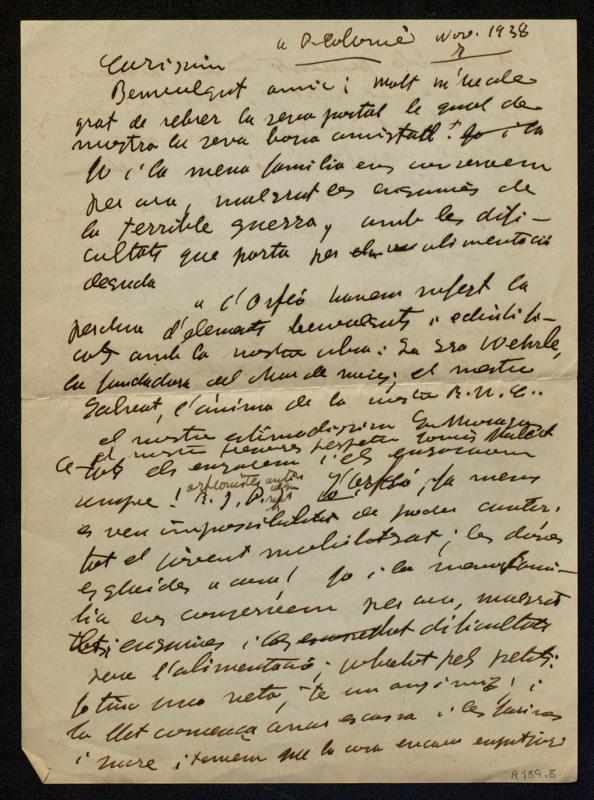 a P. Colomé Nov. 1938
7
Carissim
Benvolgut amic: molt m'he ale-
grat de rebrer la seva postal la qual de-
mostra la seva bona amistat!
Jo i la meva familia ens conservem
per ara, malgrat les angunies de
la terrible guerra, amb les difi-
cultats que porta per alimentació
deguda
a l'Orfeó havem sofert la
perdua d'elements benvolguts i identifi-
cats amb la nostra obra: La Sra Wehrle,
la fundadora del chor de noies; el mestre
Salvat, l'ánima de la nostra
el nostre
el nostre tresorer perpetu Tomás
tots els enyorem i els enyorarem
sempre!
L'Orfeó,
es veu impossibilitat de poder cantar:
tot el jovent mobilitzat; les dónes
a casa! Jo i la meva fami-
lia ens conservem per ara, malgrat
les angunies i dificultats
pera l'alimentació; sobretot pels petits:
jo tinc una neta, te un any i mig! i
la llet comença anar escassa i les farines
i sucre i temem que la cosa encara empitjori
R 189.8